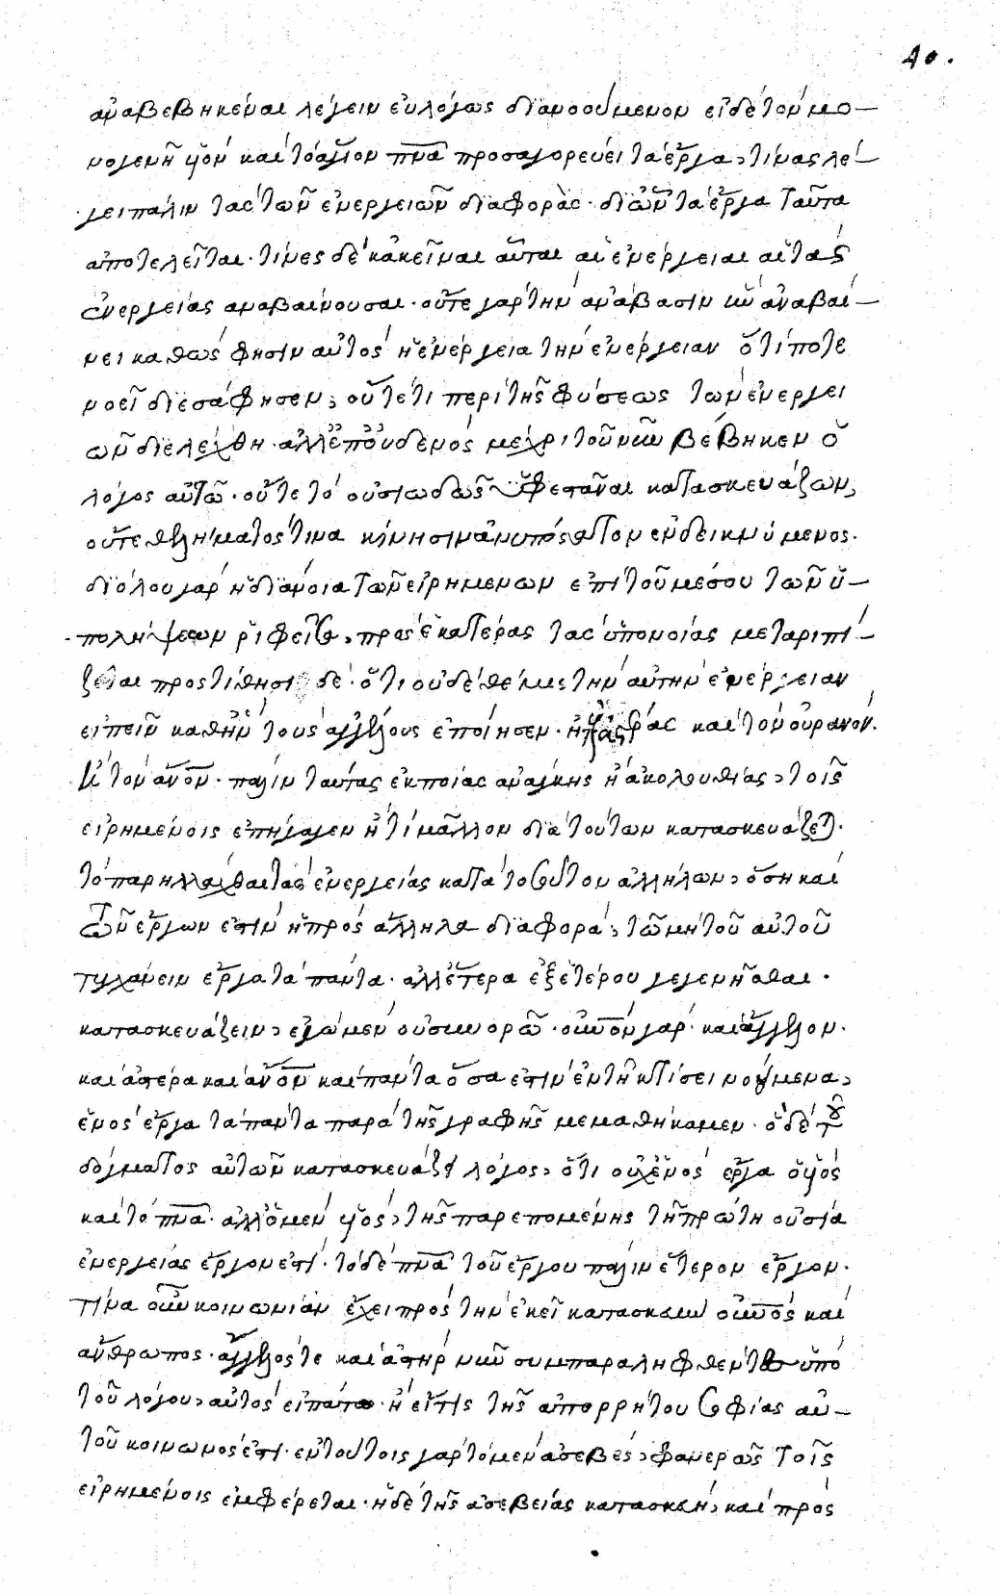 40.
ἀναβεβηκέναι λέγειν εὐλόγως διανοούμενον εἰ δὲ τὸν μο-
νογενῆ υἱὸν καὶ τὸ ἅγιον πνα προσαγορεύει τὰ ἔργα, τίνας λέ-
γει πάλιν τὰς τῶν ἐνεργειῶν διαφορὰς. δι' ὧν τὰ ἔργα ταῦτα
ἀποτελεῖται. τίνες δὲ κἀκεῖναι αὗται αἱ ἐνέργειαι αἱ τὰς
ἐνεργείας ἀναβαίνουσαι. οὔτε γὰρ τὴν ἀνάβασιν ἣν ἀναβαί-
νει καθώς φησιν αὐτὸς ἡ ἐνέργεια τὴν ἐνέργειαν ὅ τί ποτε
νοεῖ διεσάφησεν, οὔτέ τι περὶ τῆς φύσεως τῶν ἐνεργει
ῶν διελέχθη. ἀλλ' ἐπ' οὐδενὸς μέχρι τοῦ νῦν βέβηκεν ὁ
λόγος αὐτῶ. οὔτε τὸ οὐσιωδῶς ὑφεστᾶναι κατασκευάζων,
οὔτε θελήματός τινα κίνησιν ἀνυπόστατον ἐνδεικνύμενος.
διόλου γὰρ ἡ διάνοια τῶν εἰρημένων ἐπὶ τοῦ μέσου τῶν ὑ-
πολήψεων ῥιφεῖσα, πρὸς ἑκατέρας τὰς ὑπονοίας μεταριπί-
ζεται προστίθησι δὲ. ὅτι οὐδὲ θέμις τὴν αὐτὴν ἐνέργειαν
εἰπεῖν καθ' ἣν τοὺς ἀγγέλους ἐποίησεν. ἢ τοὺς ἀστέρας καὶ τὸν οὐρανόν.
κ τὸν ἀνον. πάλιν ταύτας ἐκ ποίας ἀνάγκης ἢ ἀκολουθίας, τοῖς
εἰρημένοις ἐπήγαγεν ἢ τί μᾶλλον διὰ τούτων κατασκευάζετ.
τὸ παρηλλάχθαι τὰς ἐνεργείας κατὰ τοσοῦτον ἀλλήλων, ὅση καὶ
τῶν ἔργων ἐστὶν ἡ πρὸς ἄλληλα διαφορὰ, τῶ μὴ τοῦ αὐτοῦ
τυγχάνειν ἔργα τὰ πάντα. ἀλλ' ἕτερα ἐξ ἑτέρου γεγενῆσθαι.
κατασκευάζειν, ἐγὼ μὲν οὔπω ὁρῶ. οὐνον γὰρ. καὶ ἄγγελον.
καὶ ἀστέρα καὶ ἀνον καὶ πάντα ὅσα ἐστὶν ἐν τῆ κτίσει νοούμενα,
ἑνὸς ἔργα τὰ πάντα παρὰ τῆς γραφῆς μεμαθήκαμεν. ὁ δὲ τοῦ
δόγματος αὐτῶν κατασκευάζει λόγος, ὅτι οὐχ' ἑνὸς ἔργα ὁ υἱὸς
καὶ τὸ πνα. ἀλλ' ὁ μὲν υἱὸς, τῆς παρεπομένης τῆ πρώτη οὐσία
ἐνεργείας ἔργον ἐστὶ. τὸ δὲ πνα τοῦ ἔργου πάλιν ἕτερον ἔργον.
τίνα οὖν κοινωνίαν ἔχει πρὸς τὴν ἐκεῖ κατασκευὴν οὐνος καὶ
ἄνθρωπος. ἄγγελός τε καὶ ἀστὴρ νῦν συμπαραληφθέντα ὑπὸ
τοῦ λόγου, αὐτὸς εἰπάτω. ἢ εἴ τις τῆς ἀπορρήτου σοφίας αὐ-
τοῦ κοινωνός ἐστι. ἐν τούτοις γὰρ τὸ μὲν ἀσεβὲς, φανερῶς τοῖς
εἰρημένοις ἐμφέρεται. ἡ δὲ τῆς ἀσεβείας κατασκευὴ, καὶ πρὸς